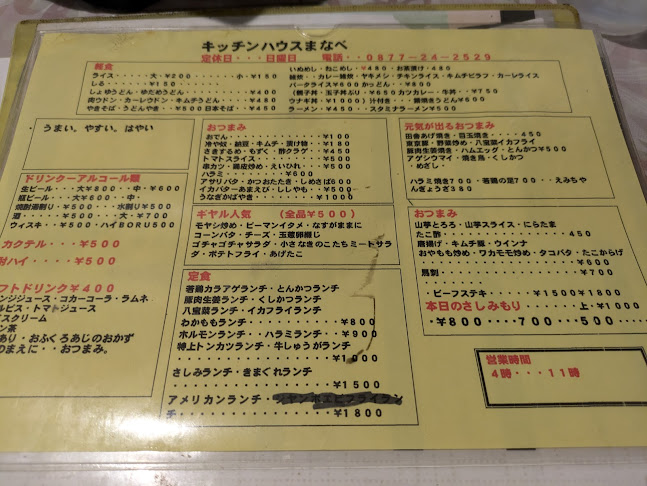 キッチンハウスまなべ
定休日・・・日曜日 電話・・0877-24-2529
軽食
ライス・・・・・大・¥200・・・・・小・¥150
しる・・・・・・¥150・・・・・・
しょうゆうどん・ゆだめうどん・・・・・・¥400
肉ウドン・カーレウドン・キムチうどん・・・¥480
やきそば・うどんやき・¥500日本そば・・¥450
いぬめし・ねこめし・¥450・お茶漬け・480
雑炊・・カレー雑炊・ヤキメシ・チキンライス・キムチピラフ・カーレライス
バータライス¥600かっどん・¥800
(親子丼、玉子丼ぶり・・¥650カツカレー・牛丼・・¥750
ウナギ丼¥1000)汁付き・・・鍋焼きうどん¥600
ラーメン・・・¥450・・・スタミナラーメン¥600
うまい。やすい。はやい
ドリンクーアルコール類
生ビール・・・大¥800・・中・¥600
瓶ビール・・・大¥600・・中・
焼酎湯割り・・・¥500、・水割り¥500
酒・・・・・小・¥500・・・大・¥700
ウィスキ・・¥500・ハイBORU500
カクテル・・・¥500
酎ハイ・・・¥500
フトドリンク¥400
ンジジュース・コカーコーラ・ラムネ
ルピス・トマトジュース
イスクリーム
ン茶
あり・おふくろあじのおかず
のまえに・・おつまみ。
おつまみ
おでん・・・・・・・・・・・・・¥100
冷や奴・納豆・キムチ・漬け物・・¥180
さきするめ・もずく・酢クラゲ・・¥450
トマトスライス・・・・・・・・・¥500
串カツ・鶏皮炒め・えいひれ、・・¥500
ハラミ・・・・・・・・・・・・・¥600
アサリバタ・かつおたたき・しめさば600
イカバターあまえび・ししゃも・・¥500
うなぎかばやき・・・・・・・・・¥1000
ギャル人気 (全品¥500)
モヤシ炒め・ピーマンイタメ・なすがままに
コーンバタ・チーズ・玉蓮卵綴じ
ゴチャゴチャサラダ・小さなきのこたちミートサラダ・ポテトフライ・あげたこ
定食
若鶏カラアゲランチ・とんかつランチ
豚肉生姜ランチ・くしかつランチ
八宝菜ランチ・イカフライランチ
わかももランチ・・・・・・・・¥800
ホルモンランチ・・ハラミランチ・・¥900
特上トンカツランチ・牛しゅうがランチ
さしみランチ・きまぐれランチ・
・・・・・・・・・・・・・・・¥1500
アメリカンランチ・
チ・・・・・・・・・・・・・・¥1800
元気が出るおつまみ
田舎あげ焼き・目玉焼き・・・・・・・450
東京豚、・野菜炒め・八宝菜イカフライ
豚肉生姜焼き・ハムエッグ・とんかつ¥500
アゲシウマイ・焼き鳥・くしかつ
・めざし・
ハラミ焼き700・・若鶏の足700・・・えみちゃんぎょうざ380
おつまみ
山芋とろろ・山芋スライス・にらたま
たこ酢・・・・・・・・・・・・・450
唐揚げ・キムチ豚・ウインナ
おやもも炒め・ワカモモ炒め・タコバタ・たこからげ
・・・・・・・・・・・・・・・・・・¥600
馬刺・・・・・・・・・・・・・・¥700
・・ビーフステキ・・・・・¥1500¥1800
本日のさしみもり・・・・上・¥1000
・¥800・・・・700・・・500・・・
営業時間
4時・・・11時